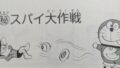 ㊙スパイ大作戦